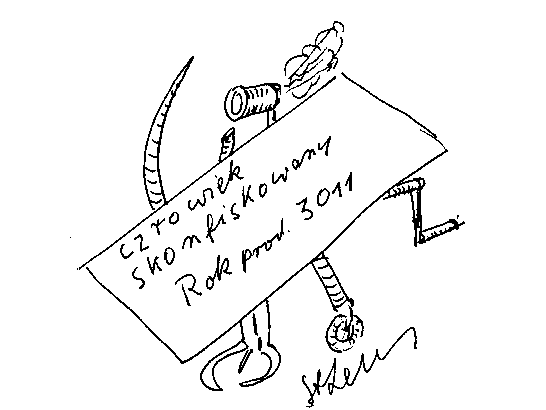 człowiek
skonfiskowany
Rok prod. 3011
St Lem